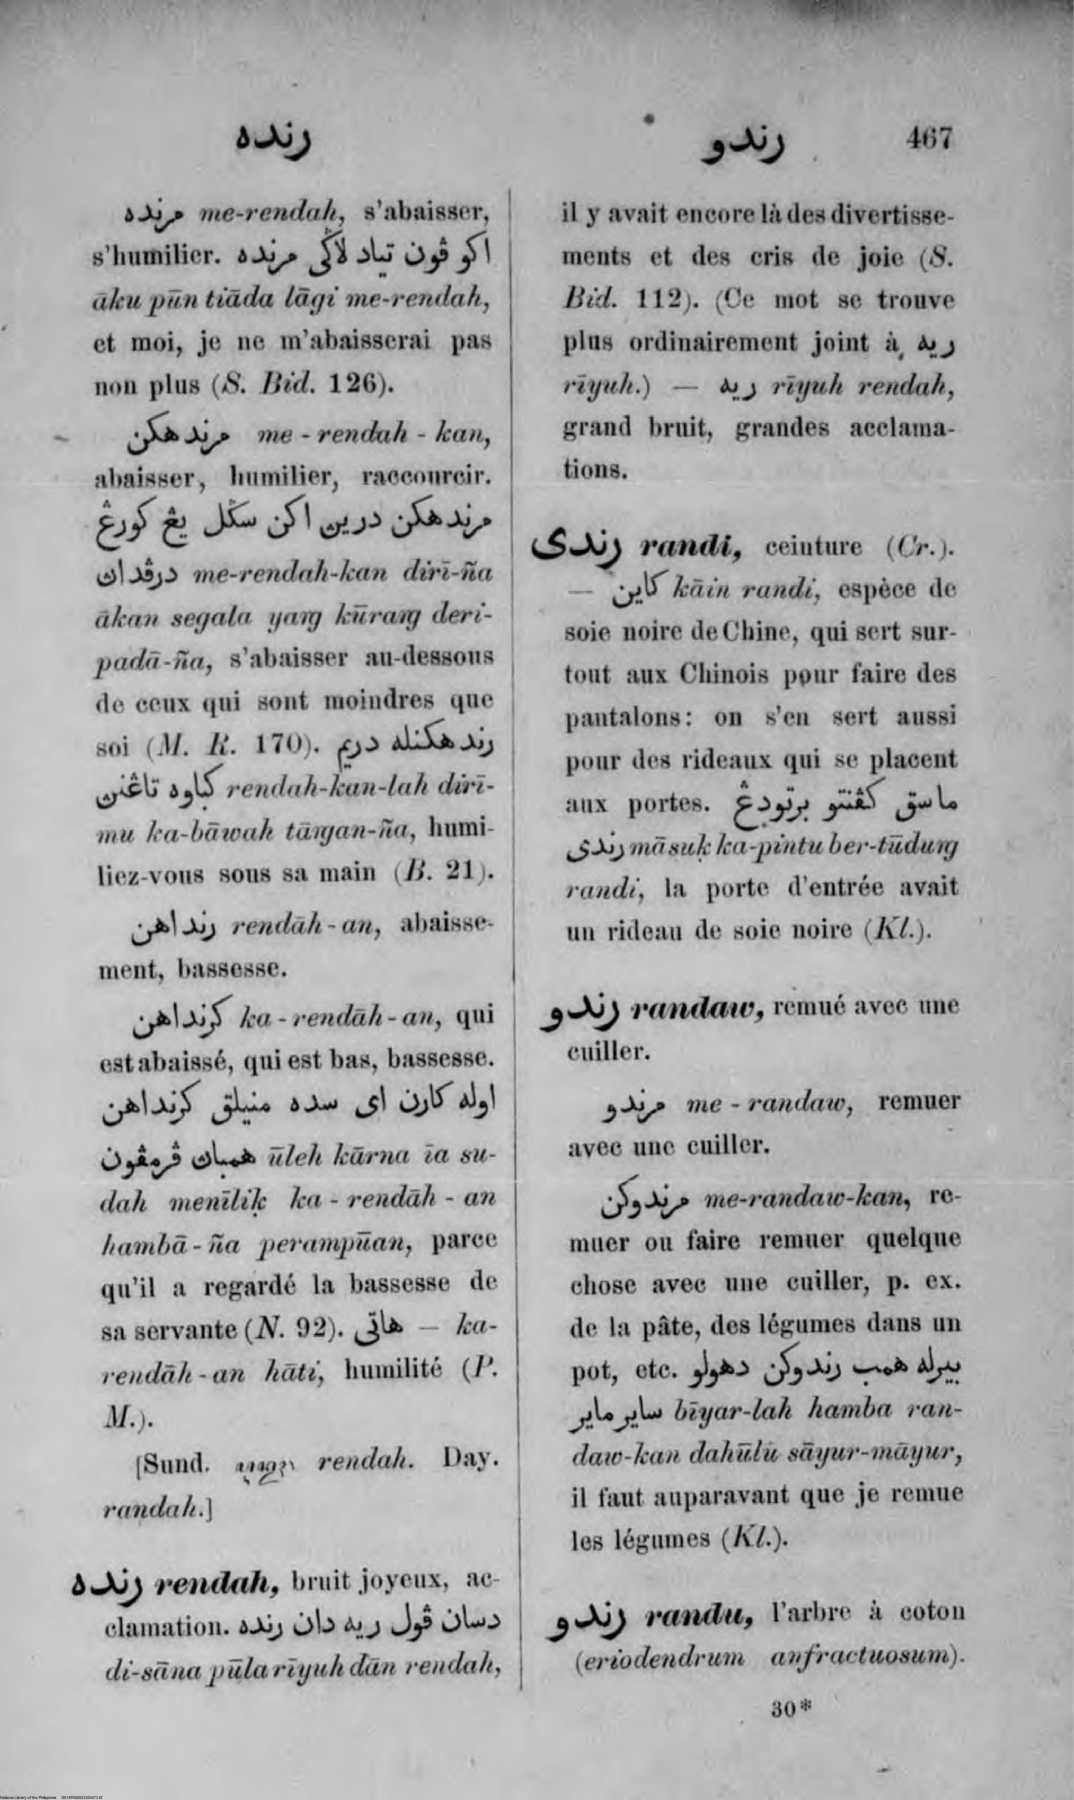 رنده
رندو 467
مرنده me-rendah, s'abaisser,
s'humilier. اكو ڤون تياد لاڬي مرنده
āku pūn tiāda lāgi me-rendah,
et moi, je ne m'abaisserai pas
non plus (S. Bid. 126).
مرندهكن me-rendah-kan,
abaisser, humilier, raccourcir.
مرندهكن درين اكن سڬل يڠ كورڠ
درڤدان me-rendah-kan dirī-ña
ākan segala yaṙg kūraṙg deri-
padā-ña, s'abaisser au-dessous
de ceux qui sont moindres que
soi (M. R. 170). رندهكنله دريم
كباوه تاڠنن rendah-kan-lah dirī-
mu ka-bāwah tāṙgan-ña, humi-
liez-vous sous sa main (B. 21).
رنداهن rendāh-an, abaisse-
ment, bassesse.
كرنداهن ka-rendāh-an, qui
est abaissé, qui est bas, bassesse.
اوله كارن اى سده منيلق كرنداهن
همبان ڤرمڤون ūleh kārna īa su-
dah menīliḳ ka-rendāh-an
hambā-ña perampūan, parce
qu'il a regardé la bassesse de
sa servante (N. 92). هاتى — ka-
rendāh-an hāti, humilité (P.
M.).
[Sund. rendah. Day.
randah.]
رنده rendah, bruit joyeux, ac-
clamation. دسان ڤول ريه دان رنده
di-sāna pūla rīyuh dān rendah,
il y avait encore là des divertisse-
ments et des cris de joie (S.
Bid. 112). (Ce mot se trouve
plus ordinairement joint à ريه
rīyuh.) — ريه rīyuh rendah,
grand bruit, grandes acclama-
tions.
رندى randi, ceinture (Cr.).
— كاين kāin randi, espèce de
soie noire de Chine, qui sert sur-
tout aux Chinois pour faire des
pantalons: on s'en sert aussi
pour des rideaux qui se placent
aux portes. ماسق كڤنتو برتودڠ
رندى māsuḳ ka-pintu ber-tūduṙg
randi, la porte d'entrée avait
un rideau de soie noire (Kl.).
رندو randaw, remué avec une
cuiller.
مرندو me-randaw, remuer
avec une cuiller.
مرندوكن me-randaw-kan, re-
muer ou faire remuer quelque
chose avec une cuiller, p. ex.
de la pâte, des légumes dans un
pot, etc. بيرله همب رندوكن دهولو
ساير ماير bīyar-lah hamba ran-
daw-kan dahūlū sāyur-māyur,
il faut auparavant que je remue
les légumes (Kl.).
رندو randu, l'arbre à coton
(eriodendrum anfractuosum).
30*